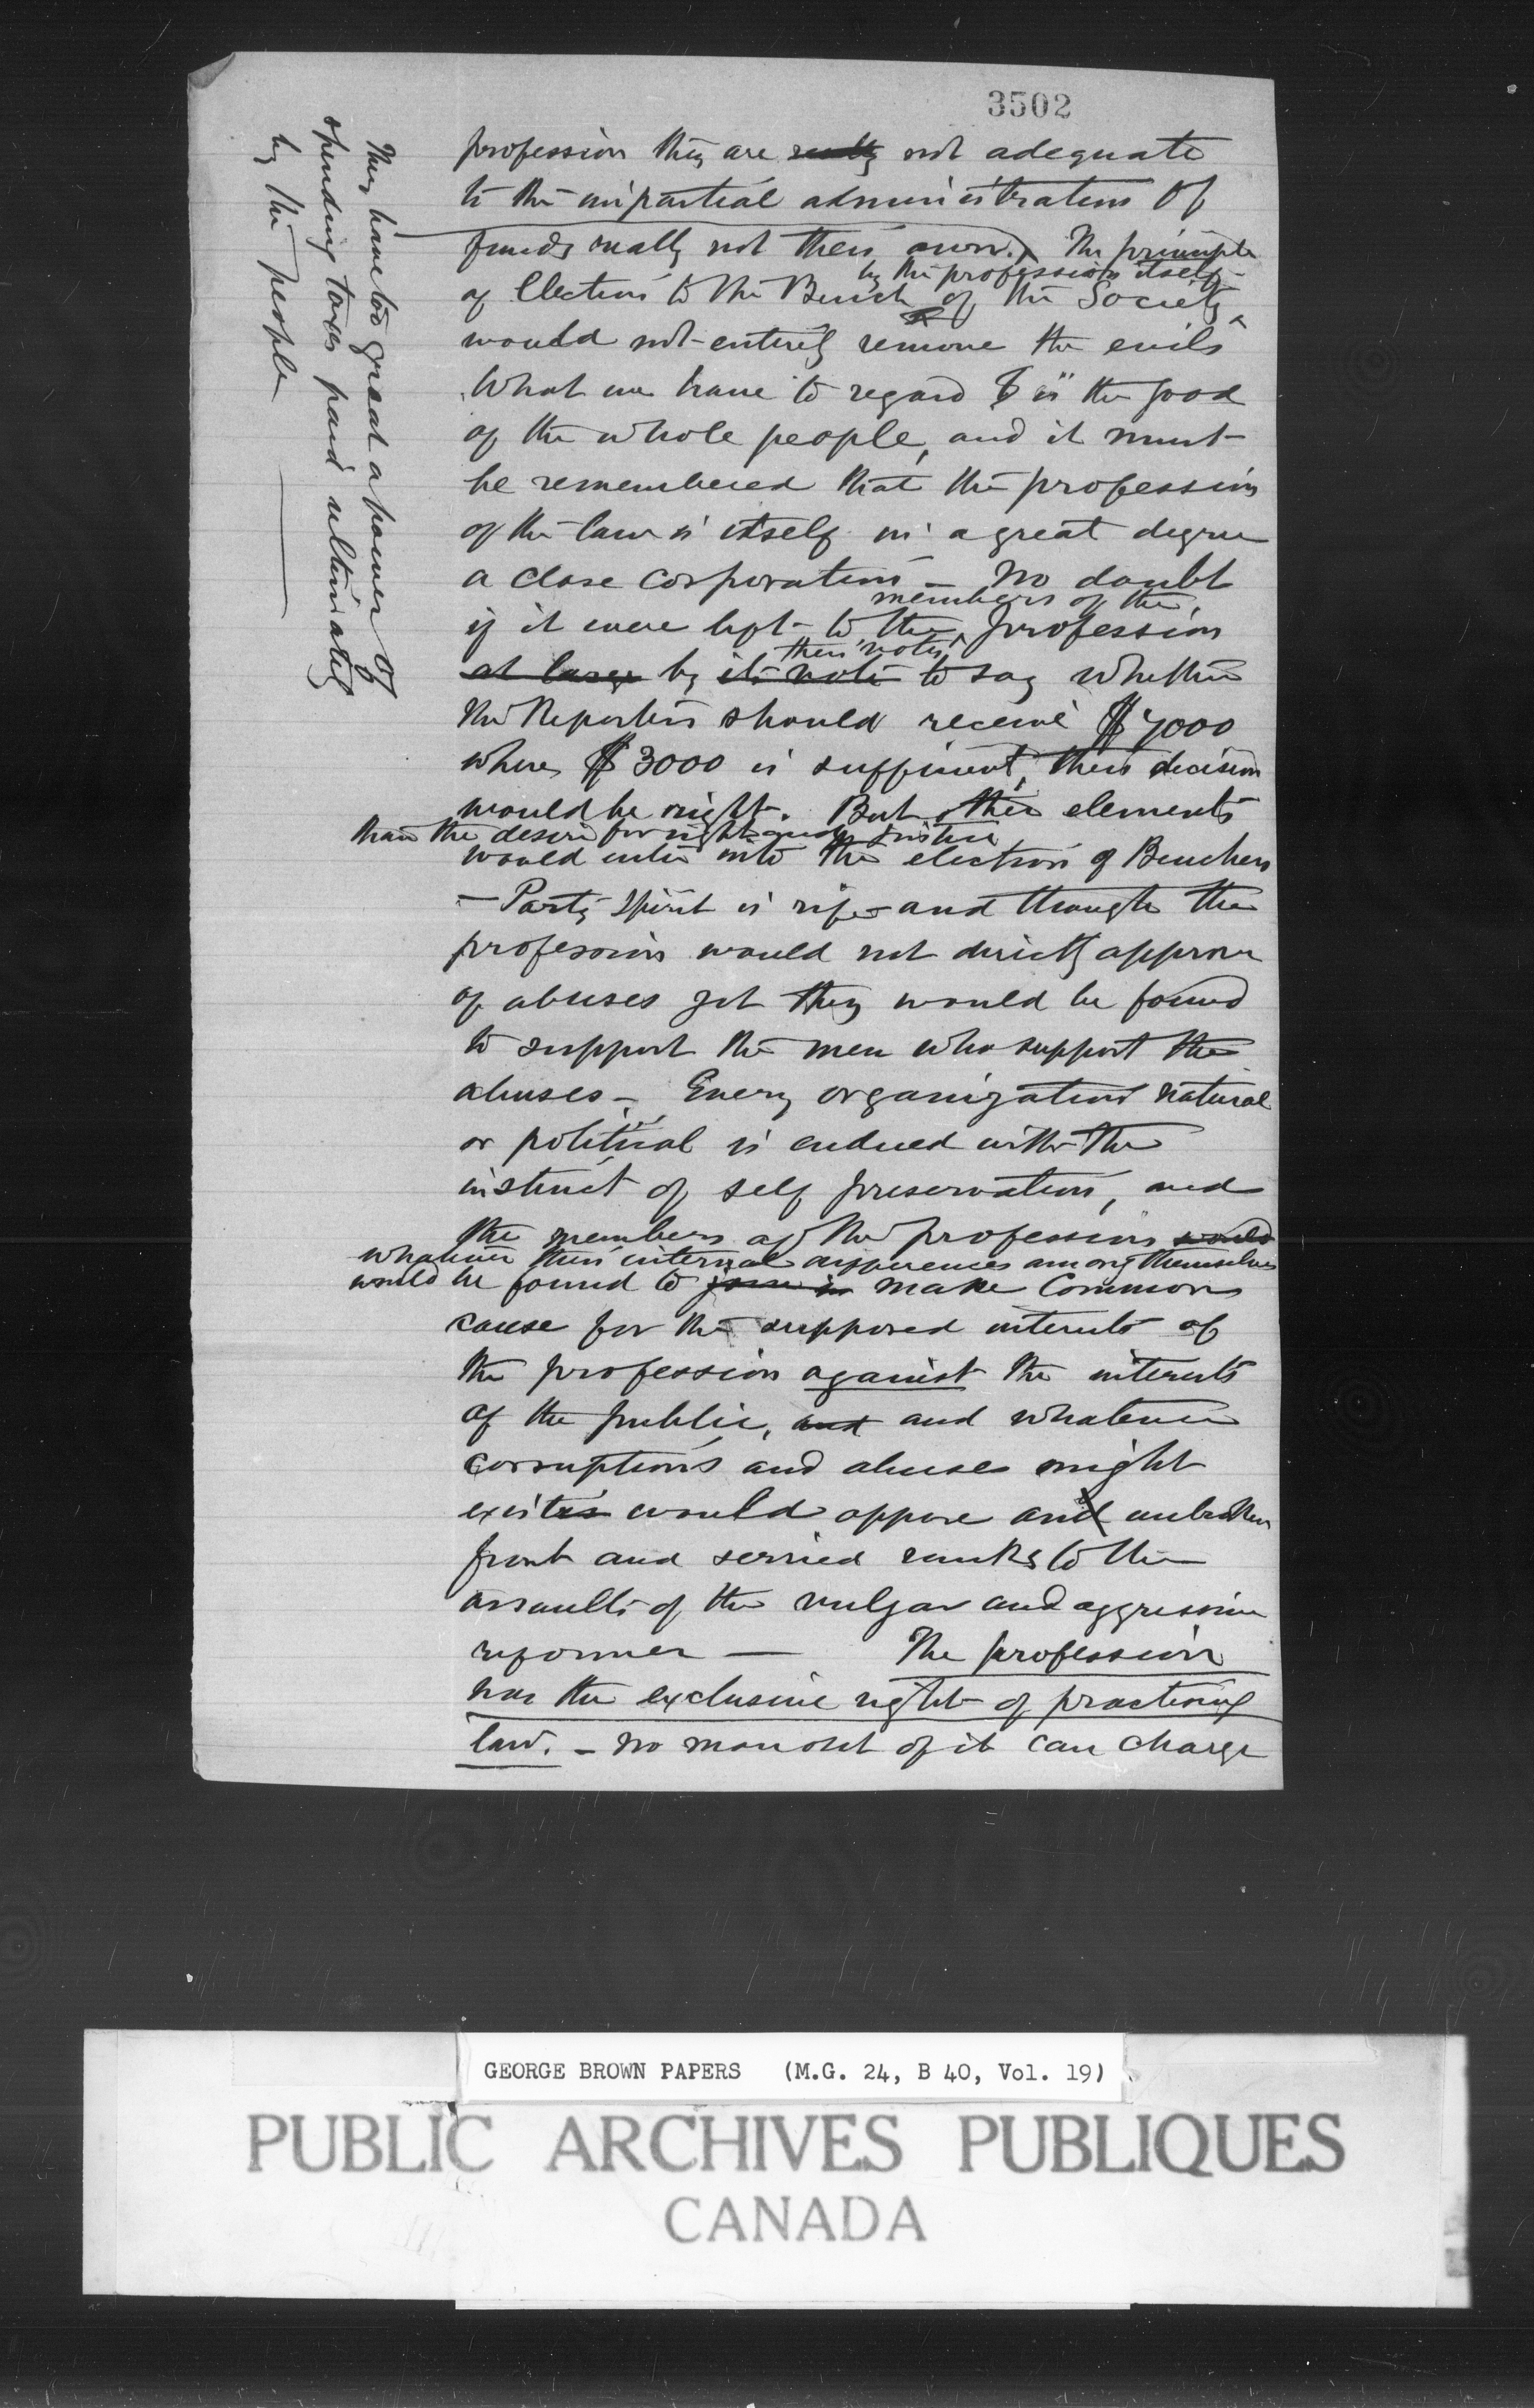 3502
profession they are really not adequate
to the impartial administration of
funds really not their own. The principle
by the profession itself
of Election to the Bench of the Society
would not entirely remove the evils
What we have to regard is the good
of the whole people, and it must
be remembered that the profession
of the law is itself in a great degree
a close corporation — No doubt
members of the
if it were left to the profession
their votes
at large by its vote to say whether
the Reporters should receive $7000
where $3000 is sufficient, their decision
would be right. But other elements
than the desire for right and justice
would enter into the election of Benchers
— Party spirit is rife and though the
profession would not directly approve
of abuses yet they would be found
to support the men who support the
abuses — Every organization natural
or political is endued with the
instinct of self preservation, and
the members of the profession would
whatever their internal differences among themselves
would be found to join in make common
cause for the supposed interests of
the profession against the interests
of the public, and and whatever
corruptions and abuses might
exist would oppose an unbroken
front and serried ranks to the
assaults of the vulgar and aggressive
reformer — The profession
has the exclusive right of practising
law. — No man out of it can charge
They have too great a power of
spending taxes paid ultimately
by the people
GEORGE BROWN PAPERS (M.G. 24, B 40, Vol. 19)
PUBLIC ARCHIVES PUBLIQUES
CANADA